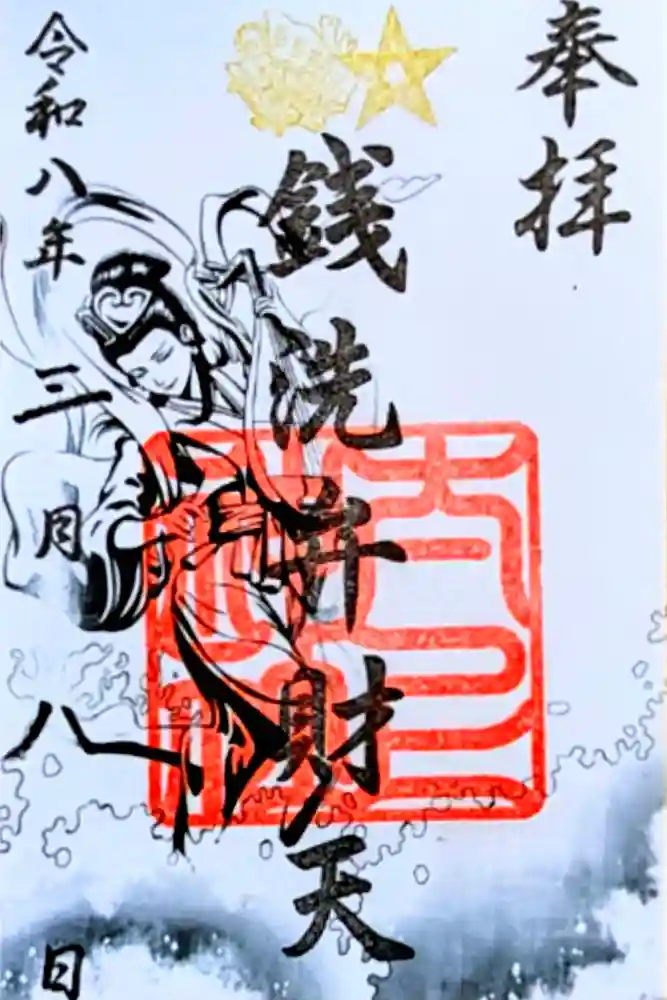 奉拝
銭洗弁財天
令和八年三月八日